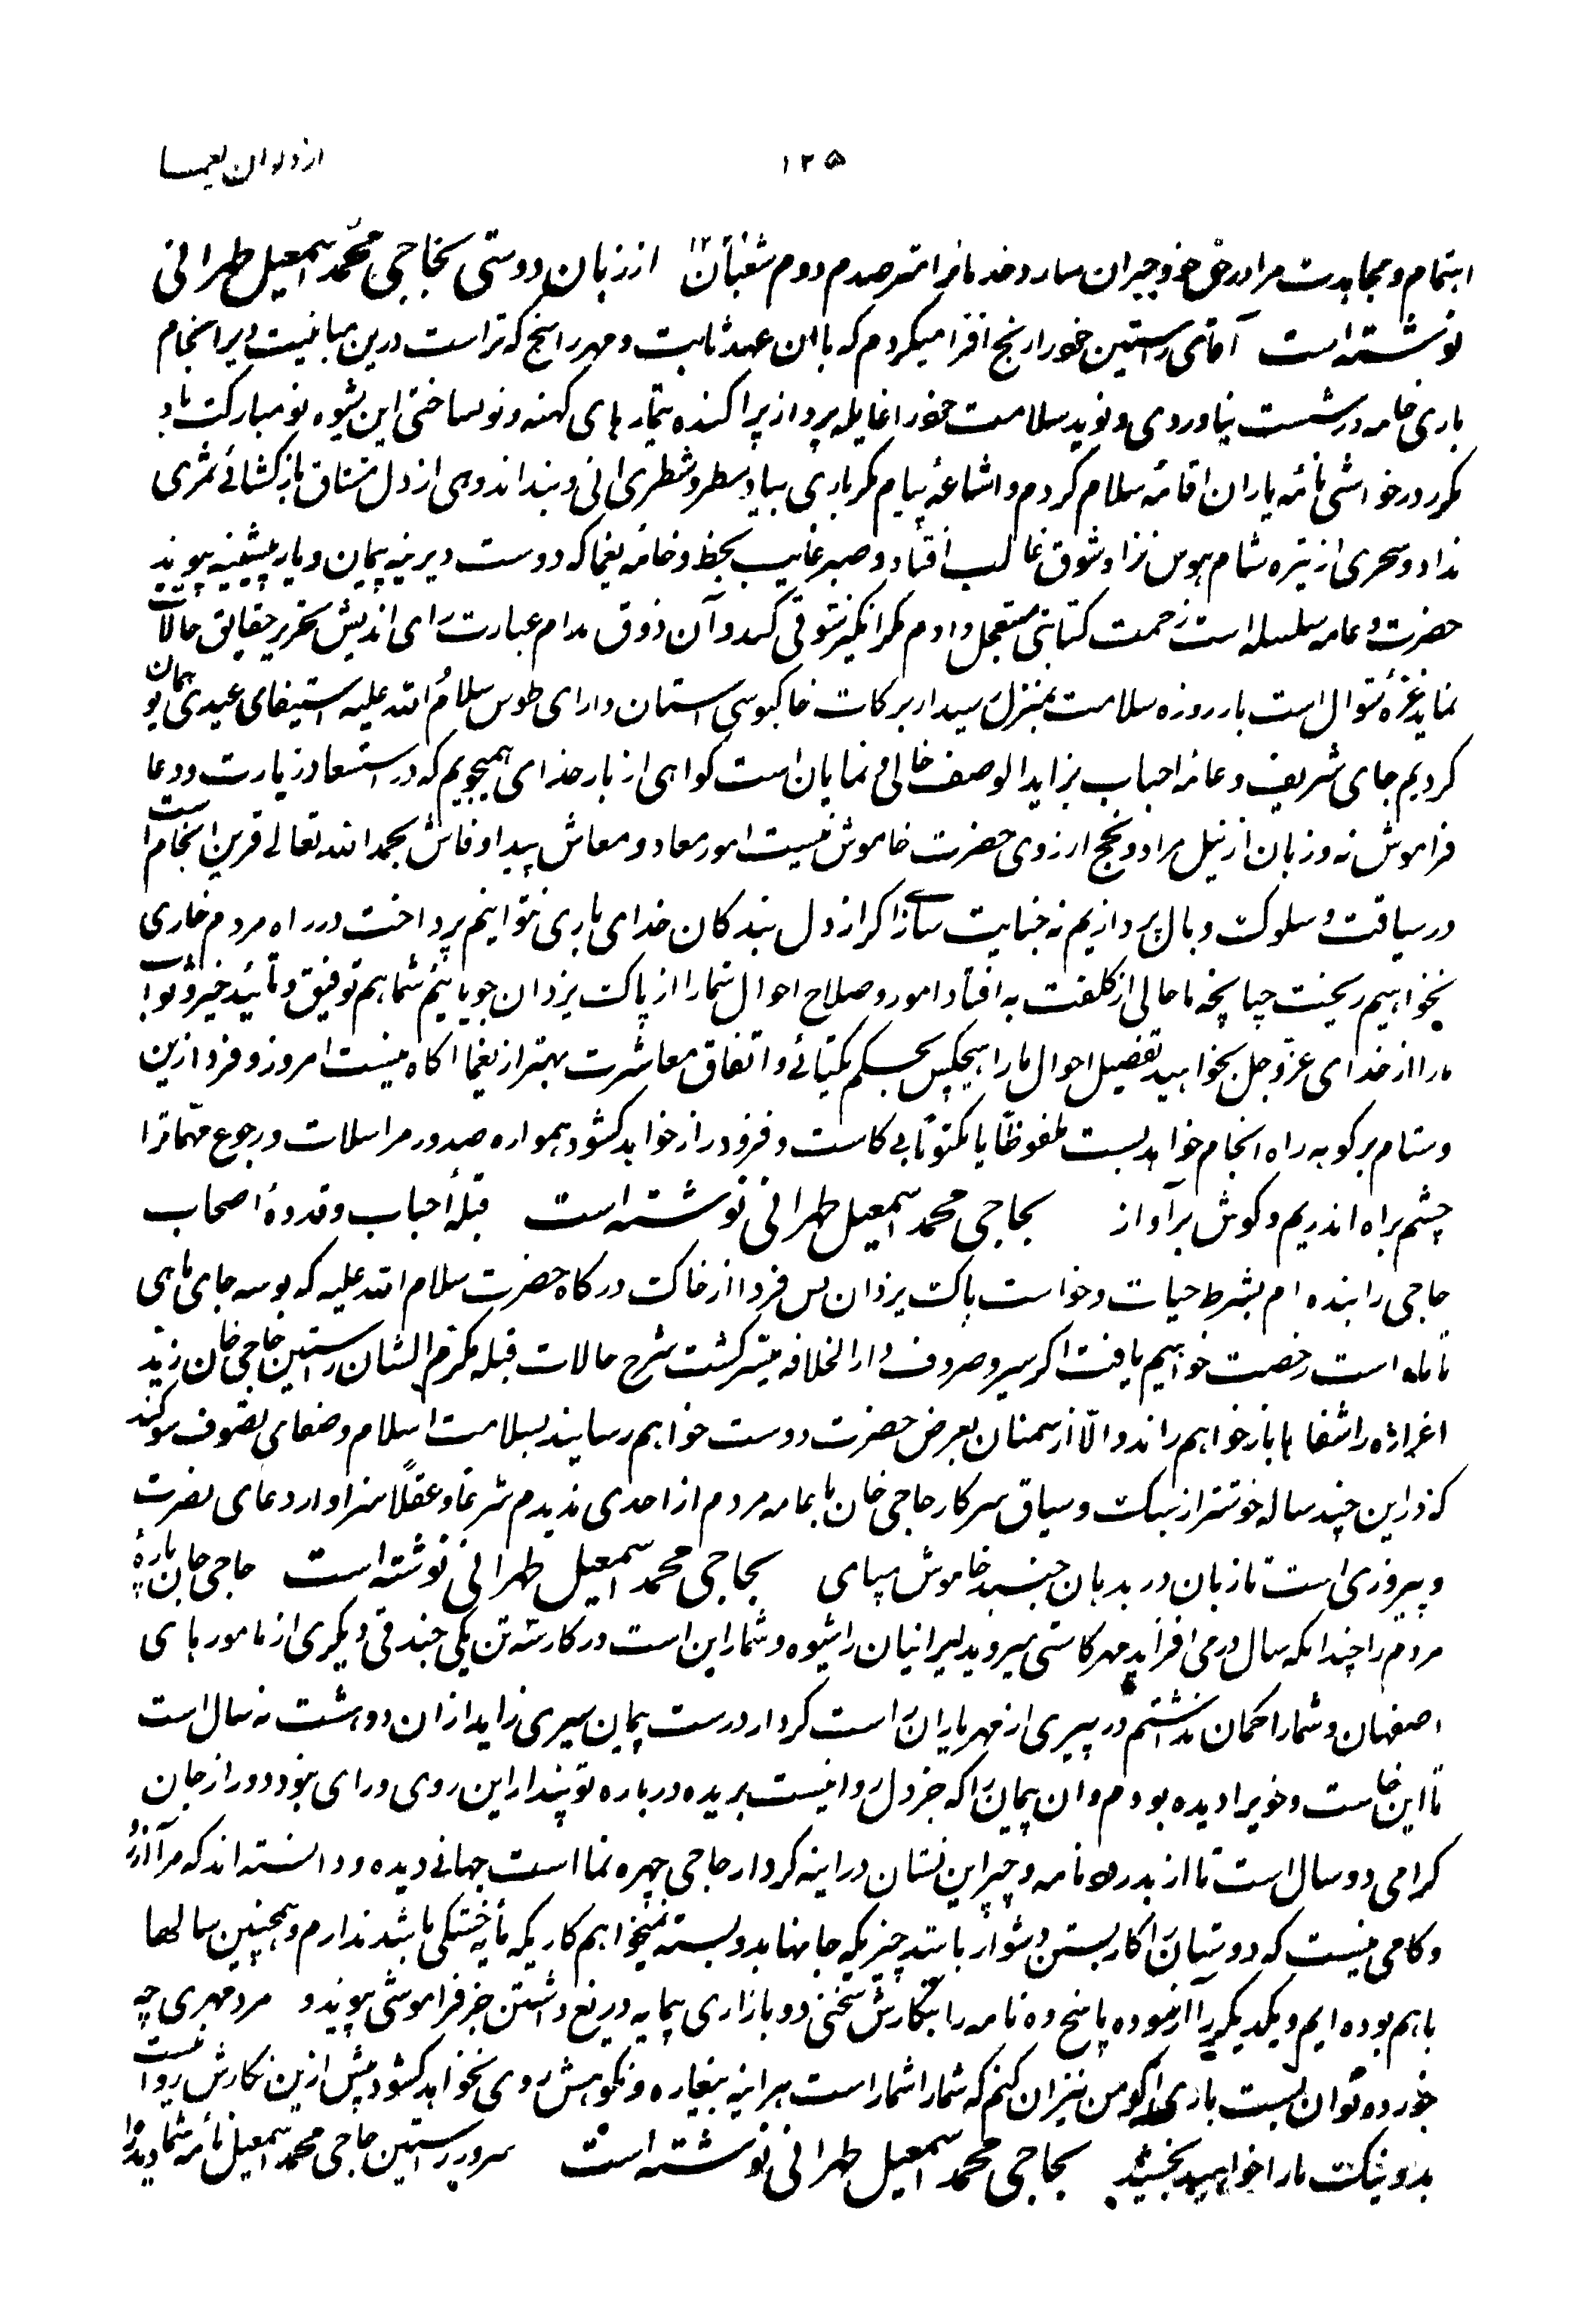 ۱۲۵
از دیوان یغما
اهتمام و مجاهدت مرا در حق خود دوم شعبان ۱۲ از زبان دوستی بحاجی محمد اسمعیل طهرانی
نوشته است آقای راستین خود را رنج افزا میکردم که با ان عهد ثابت و مهر راسخ که تراست درین مباینت دیر انجام
باری خامه در شست نیاوردی و نوید سلامت خود را پرداز پراکنده تیمارهای کهنه و نو نساختی این شیوه نو مبارکت باد
مکرر در خواشی نامه یاران اقامه سلام کردم و اشاعه پیام مکر باری بیاد سطر و شطری انی و بند اندوهی از دل مشتاق باز کشائے ثمری
نداد و سحری از تیره شام هوس نزاد شوق غالب افتاد و صبر غایب بخط و خامه یغما که دوست دیرینه پیمان و یار پیشینه پیوند
حضرت و عامه سلسله است زحمت کتابتی و آن ذوق مدام عبارت رای اندیش تحریر حقایق حالات
نماید غره شوال است بار روزه سلامت بمنزل رسید از برکات خاکبوسی استان دارای طوس سلام الله علیه استیفای عیدی همایون
کردیم جای شریف و عامه احباب بزاید الوصف خالی و نمایان است کواهی از بار خدای همیجویم که در استسعاد زیارت و دعا
فراموش نه و زبان از نیل مراد و نجح ارزوی حضرت خاموش نیست امور معاد و معاش پیدا و فاش بحمدالله تعالی قرین انجام است
در سیاقت و سلوک و بال پردازیم نه جنایت ساز اکر از دل بندکان خدای باری نتوانیم پرداخت در راه مردم خاری
نخواهیم ریخت چنانچه ما حالی از کلفت به افتاد امور و صلاح احوال شما را از پاک یزدان جویائیم شما هم توفیق و تائید خیر و ثواب
ما را از خدای عز و جل بخواهید تفصیل احوال ما را هیچکس بحکم یکتائے و اتفاق معاشرت بهتر از یغما اکاه نیست امروز و فردا ازین
و ستام بر کو به راه انجام خواهد بست ملفوظاً یا مکتوباً بی کاست و فزود راز خواهد کشود همواره صدور مراسلات و رجوع مهمات را
چشم براه اندریم و کوش بر آواز بحاجی محمد اسمعیل طهرانی نوشته است قبله احباب و قدوه اصحاب
حاجی را بنده ام بشرط حیات و خواست پاک یزدان پس فردا از خاک درکاه حضرت سلام الله علیه که بوسه جای ماهی
تا ماه است رخصت خواهیم یافت اکر سیر و صروف دار الخلافه میسر کشت شرح حالات قبله مکرم الشان راستین حاجی خان زید
اعزازه را شفاها باز خواهم راند و الا از سمنان بعرض حضرت دوست خواهم رسانید بسلامت اسلام و صفای تصوف سوکند
که در این چند ساله خوشتر از سبک و سیاق سرکار حاجی خان با عامه مردم از احدی ندیدم شرعاً و عقلاً سزاوار دعای نصرت
و پیروزی است تا زبان در بدهان جنبد خاموش مپای بحاجی محمد اسمعیل طهرانی نوشته است حاجی جان پاره
مردم را چندانکه سال در می افزاید مهر کاستی میرود ایرانیان را شیوه و شمار این است در کار سه تن یکی جندقی دیکری از نامورهای
اصفهان و شما را کمان نداشتم در پیری از مهر یاران راست کردار درست پیمان سیری زاید از ان دو هشت نه سال است
تا این خاست و خوی را دیده بودم و ان پیمان را که جز دل روا نیست بریده درباره تو پندار این روی و رای نبود دور از جان
کرامی دو سال است تا از بدرود نامه و چیز این نشان در اینه کردار حاجی چهره نما است جهانی دیده و دانسته اند که مرا آز و
و کامی نیست که دوستیان را کار بستن دشوار باشد چیزیکه جانها بدو بسته نمیخواهم کاریکه مایه خستکی باشد ندارم و همچنین سالها
با هم بوده ایم و یکدیکر را آزموده پاسخ ده نامه را بنکارش سخنی دو بازاری بیمایه دریغ داشتن جز فراموشی پیوند و مردمهری چه
خورده توان بست باری اکر من نیز ان کنم که شما را شمار است هر اینه بیغاره و نکوهش روی نخواهد کشود بیش ازین نکارش روا نیست
بد و نیک ما را خواهید بخشید بحاجی محمد اسمعیل طهرانی نوشته است سرور راستین حاجی محمد اسمعیل نامه شما